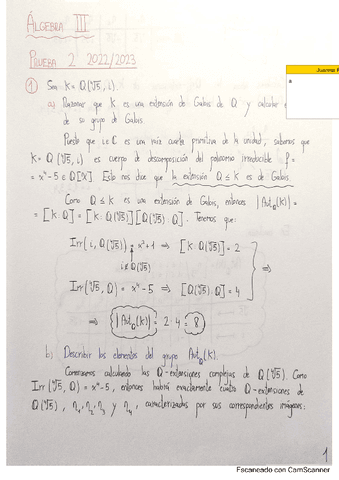 ÁLGEBRA III
PRUEBA 2 2022/2023
① Sea K = Q(⁴√5, i).
a) Razonar que K es una extensión de Galois de Q y calcular el
de su grupo de Galois.
Puesto que i ∈ C es una raíz cuarta primitiva de la unidad, sabemos que
K = Q(⁴√5, i) es cuerpo de descomposición del polinomio irreducible f =
= x⁴-5 ∈ Q[X]. Esto nos dice que la extensión Q ≤ K es de Galois.
Como Q ≤ K es una extensión de Galois, entonces |Aut_Q(K)| =
= [K : Q] = [K : Q(⁴√5)][Q(⁴√5) : Q]. Tenemos que:
Irr(i, Q(⁴√5)) = x²+1 ⇒ [K : Q(⁴√5)] = 2
i ∉ Q(⁴√5)
⇒
Irr(⁴√5, Q) = x⁴-5 ⇒ [Q(⁴√5) : Q] = 4
⇒ |Aut_Q(K)| = 2·4 = 8
b) Describir los elementos del grupo Aut_Q(K).
Comenzamos calculando las Q-extensiones complejas de Q(⁴√5). Como
Irr(⁴√5, Q) = x⁴-5, entonces habrá exactamente cuatro Q-extensiones de
Q(⁴√5), η₁, η₂, η₃ y η₄, caracterizadas por sus correspondientes imágenes:
1
Escaneado con CamScanner